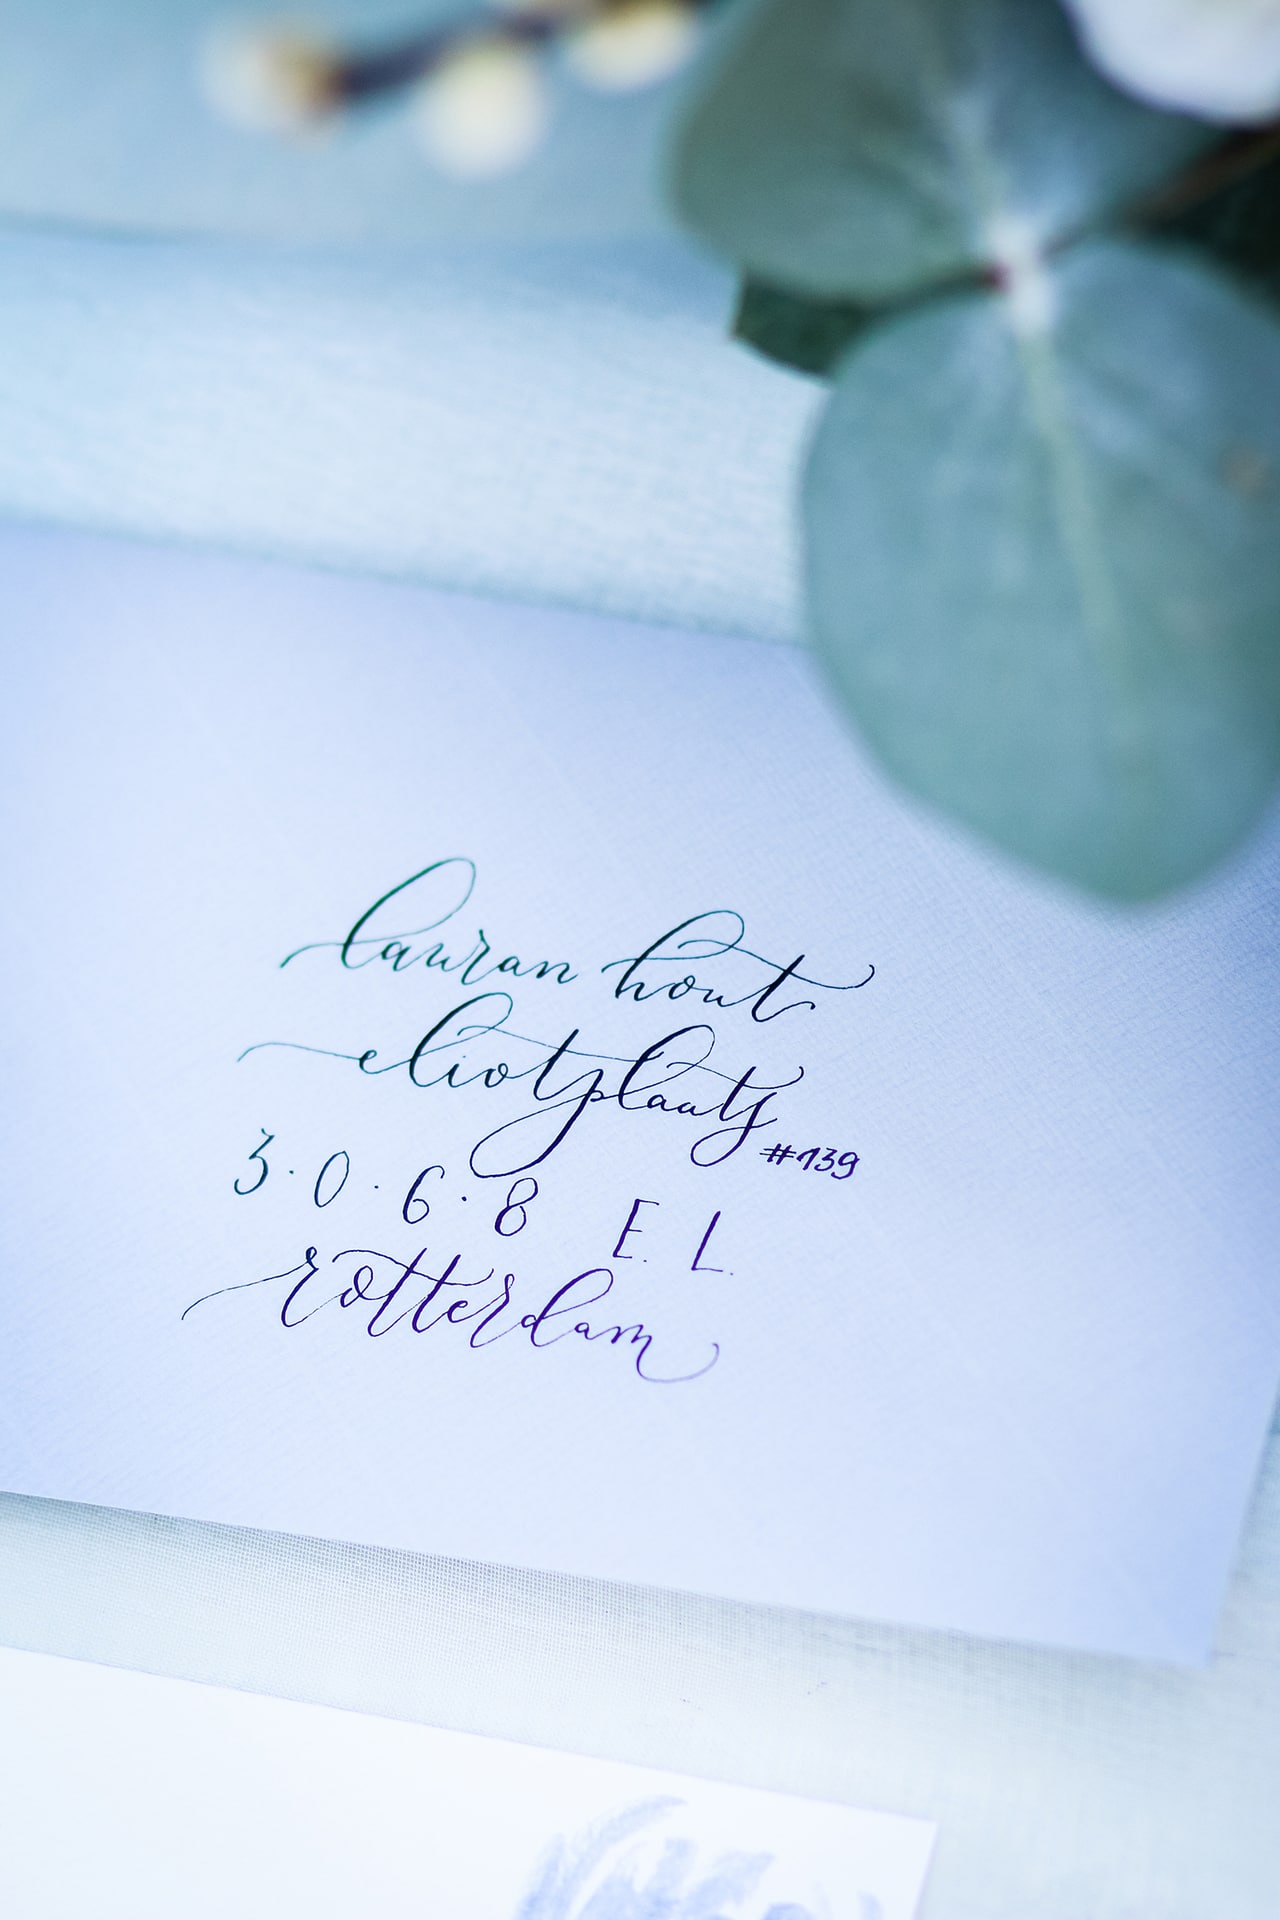 lauran hout
eliotplaats
#139
3·0·6·8 E. L.
rotterdam